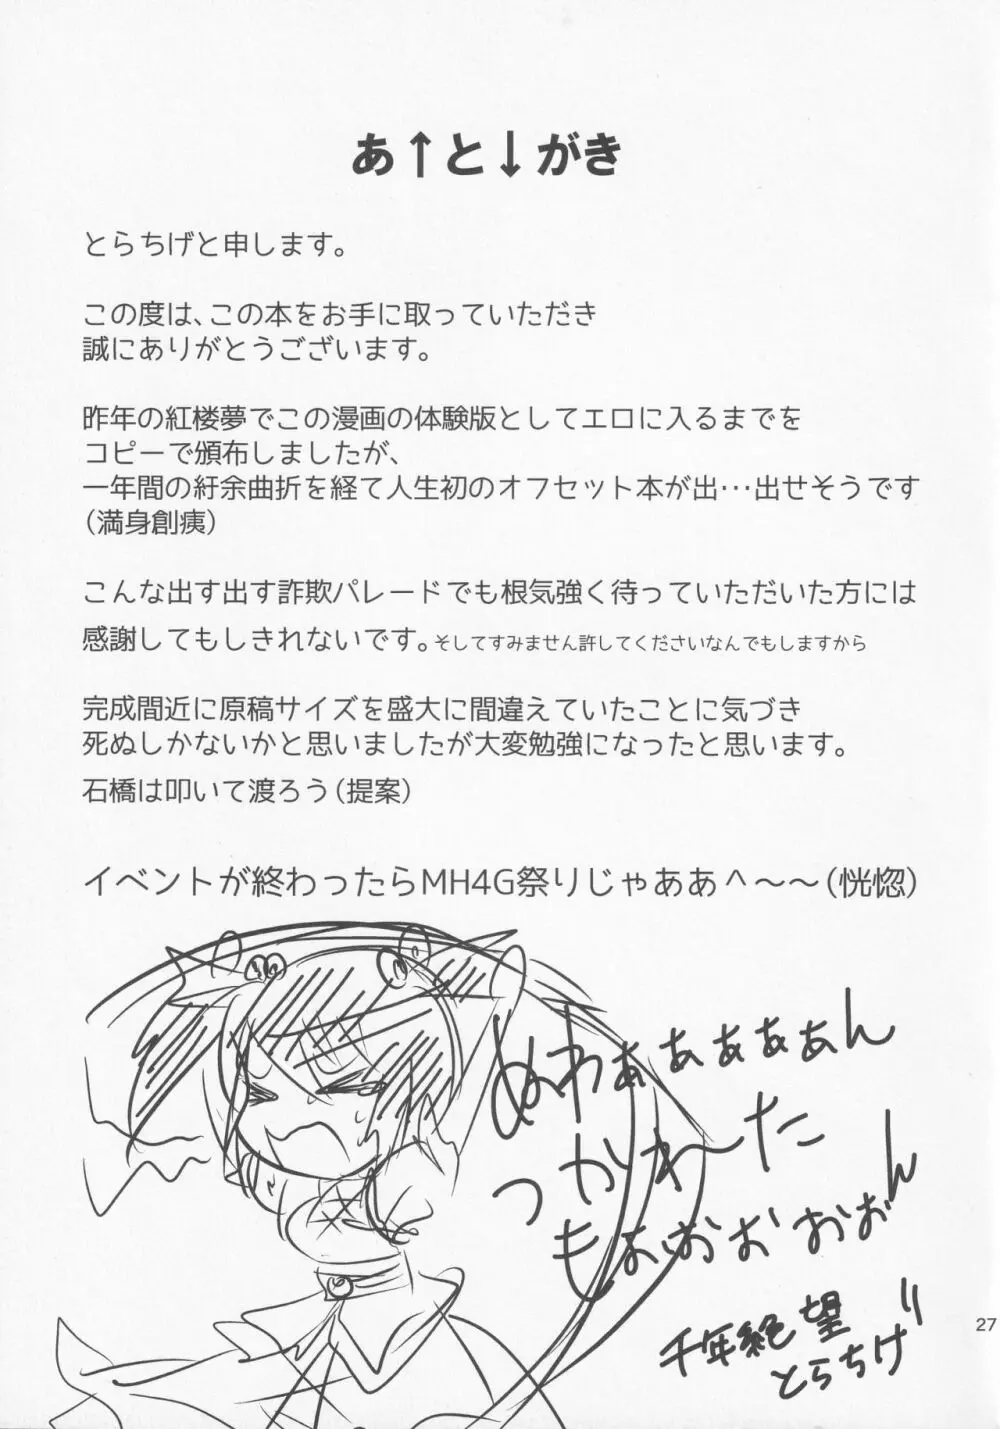 あ↑と↓がき
とらちげと申します。
この度は、この本をお手に取っていただき
誠にありがとうございます。
昨年の紅楼夢でこの漫画の体験版としてエロに入るまでを
コピーで頒布しましたが、
一年間の紆余曲折を経て人生初のオフセット本が出…出せそうです
(満身創痍)
こんな出す出す詐欺パレードでも根気強く待っていただいた方には
感謝してもしきれないです。そしてすみません許してくださいなんでもしますから
完成間近に原稿サイズを盛大に間違えていたことに気づき
死ぬしかないかと思いましたが大変勉強になったと思います。
石橋は叩いて渡ろう(提案)
イベントが終わったらMH4G祭りじゃああ^〜〜(恍惚)
ぬわぁぁぁぁぁん
つかれーた
もぉおおおおん
千年絶望
とらちげ
27